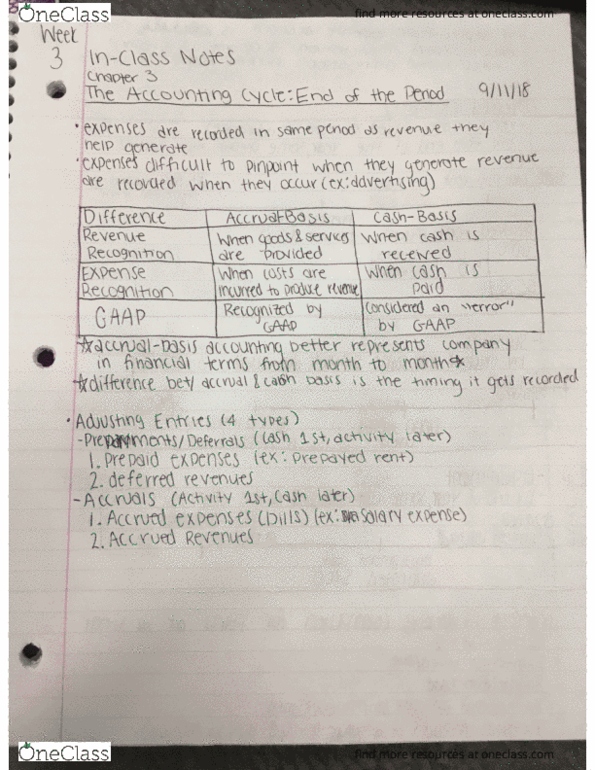 OneClass
find more resources at oneclass.com
Week
3 In-Class Notes
Chapter 3
The Accounting Cycle: End of the Period 9/11/18
• expenses are recorded in same period as revenue they
help generate
• expenses difficult to pinpoint when they generate revenue
are recorded when they occur (ex: advertising)
Difference Accrual-Basis Cash-Basis
Revenue When goods & services When cash is
Recognition are provided received
Expense When costs are When cash is
Recognition incurred to produce revenue paid
GAAP Recognized by Considered an "error"
GAAP by GAAP
☆accrual-basis accounting better represents company
in financial terms from month to month☆
☆difference bet/ accrual & cash basis is the timing it gets recorded
• Adjusting Entries (4 types)
- Prepayments/Deferrals (cash 1st, activity later)
1. Prepaid expenses (ex: prepayed rent)
2. deferred revenues
- Accruals (Activity 1st, Cash later)
1. Accrued expenses (bills) (ex: salary expense)
2. Accrued Revenues
OneClass
find more resources at oneclass.com